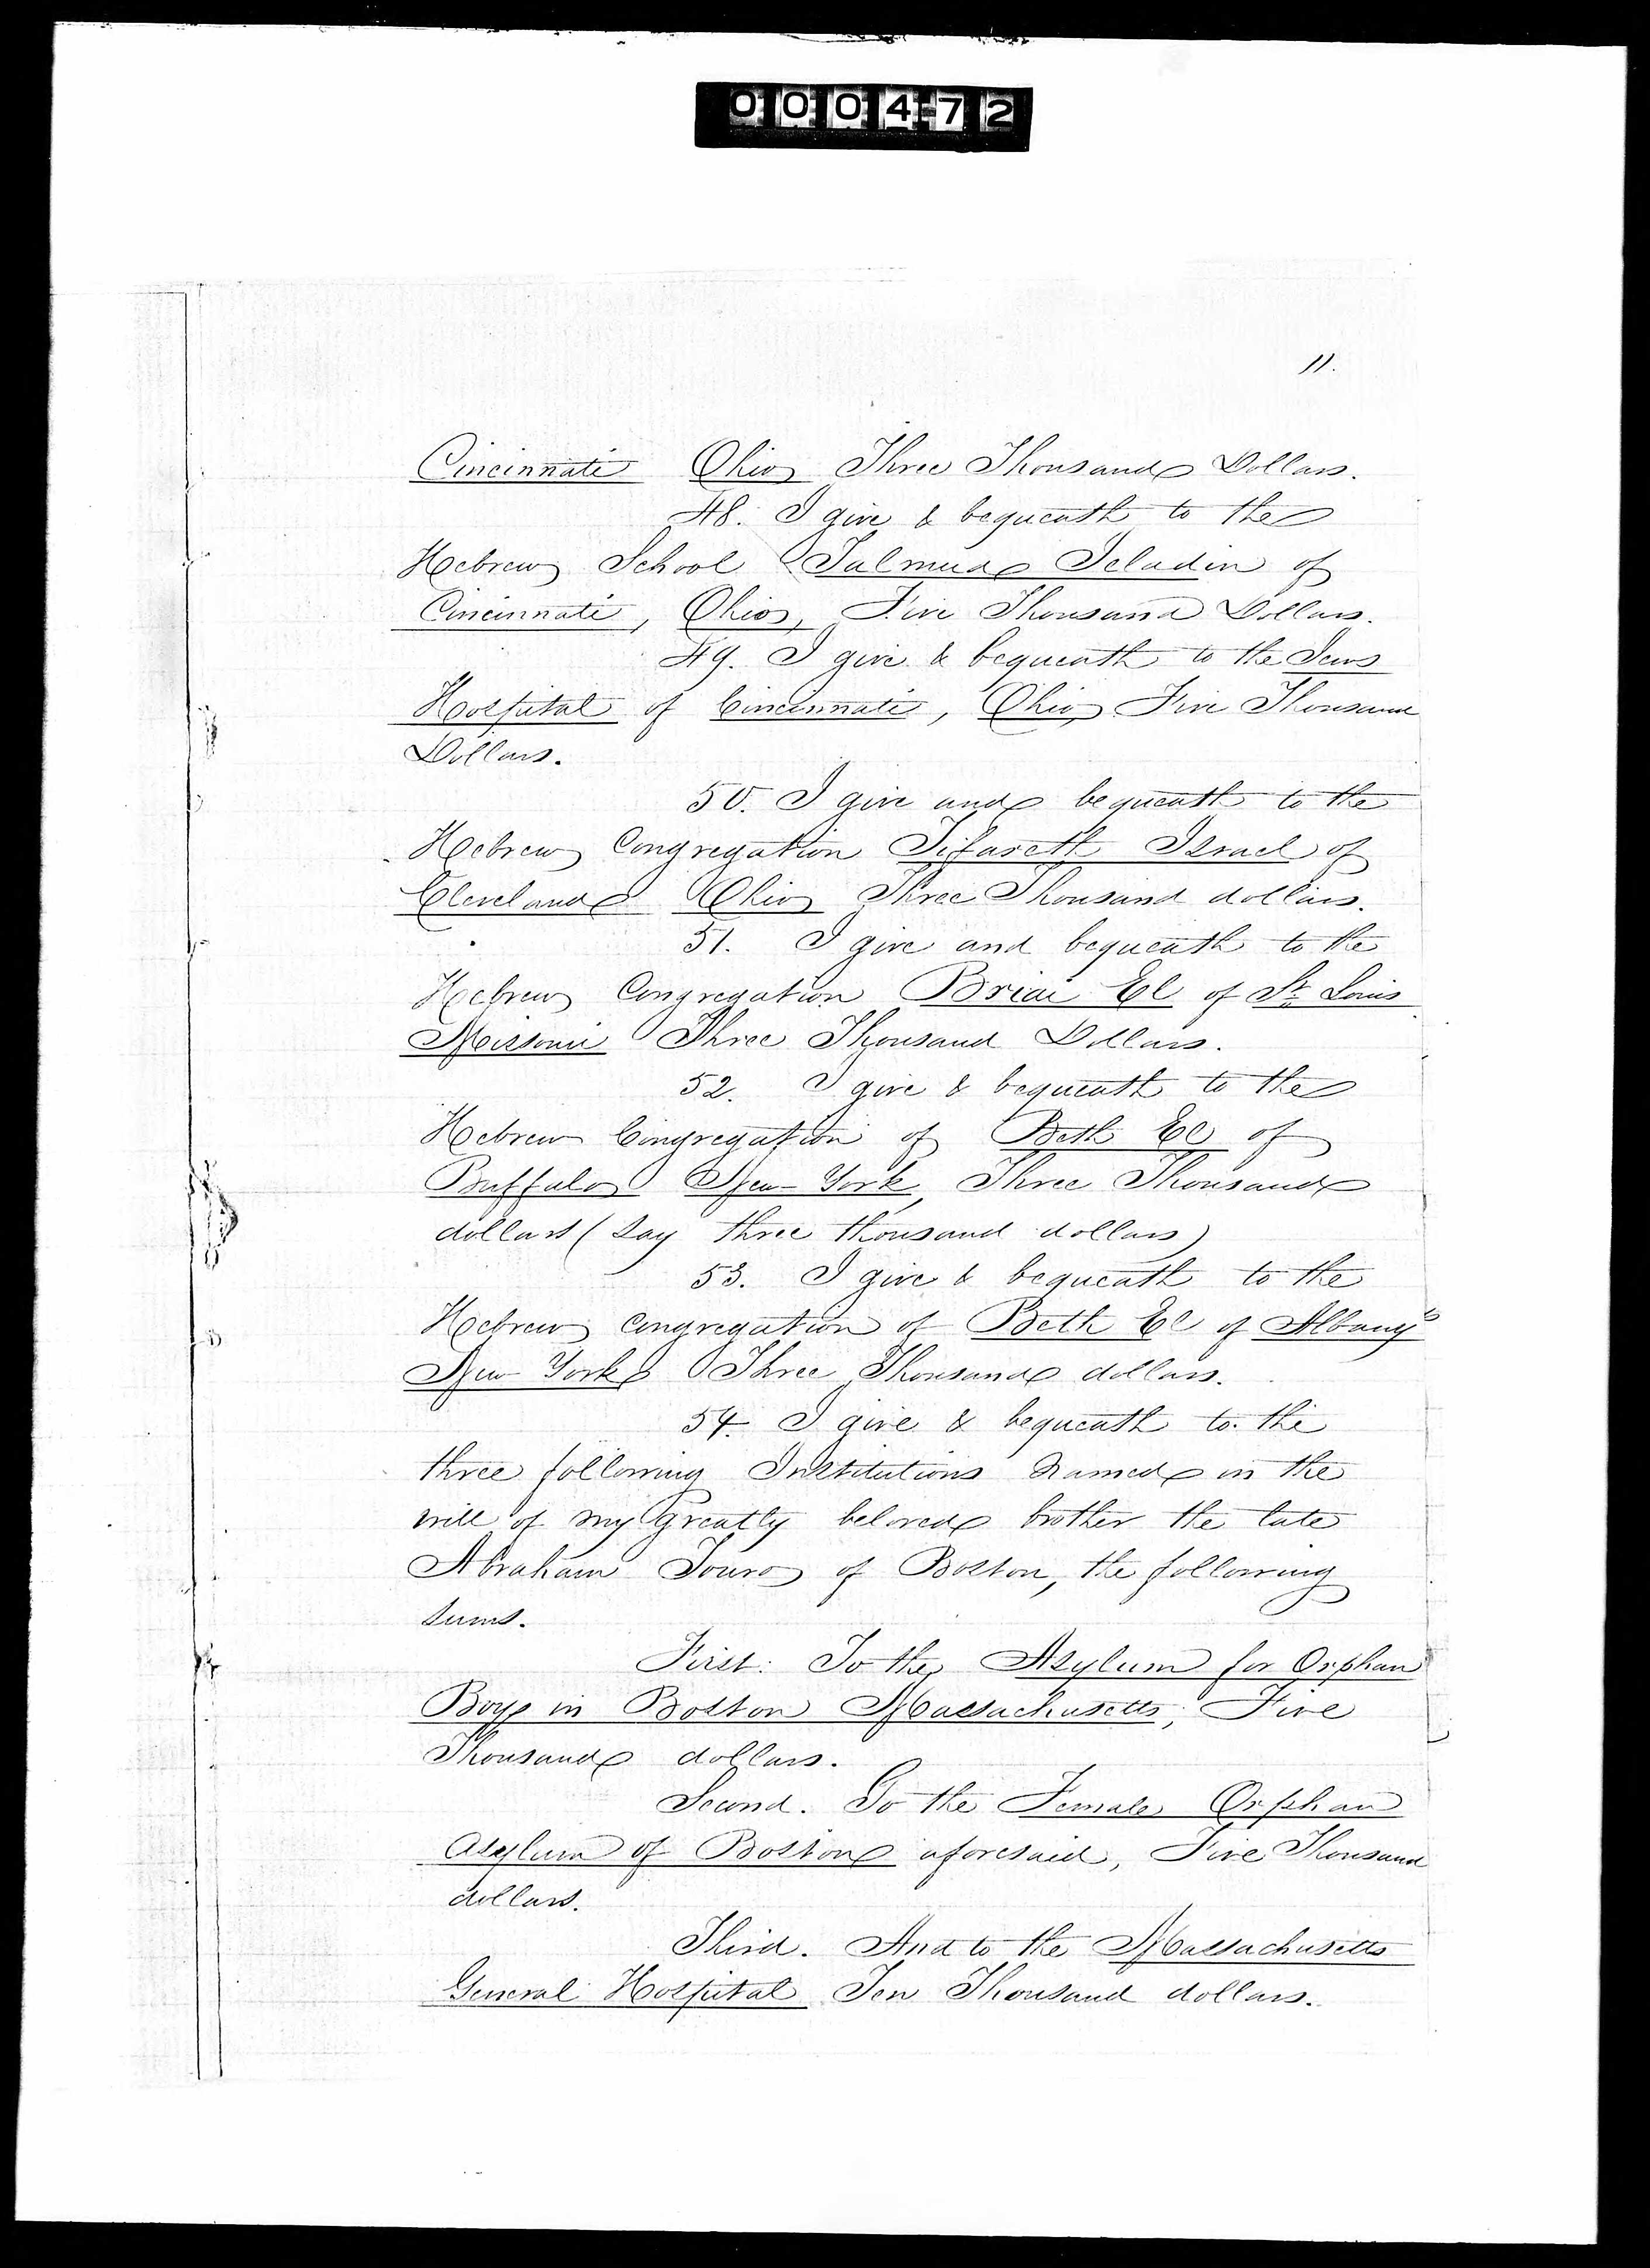 000472
11.
Cincinnati Ohio Three Thousand Dollars.
48. I give & bequeath to the
Hebrew School Talmud Jeladin of
Cincinnati, Ohio, Five Thousand Dollars.
49. I give & bequeath to the Jews
Hospital of Cincinnati, Ohio, Five Thousand
Dollars.
50. I give and bequeath to the
Hebrew Congregation Tifareth Israel of
Cleveland Ohio Three Thousand dollars.
51. I give and bequeath to the
Hebrew Congregation Briai El of St. Louis
Missouri Three Thousand Dollars.
52. I give & bequeath to the
Hebrew Congregation of Beth El of
Buffalo New York, Three Thousand
dollars (say three thousand dollars)
53. I give & bequeath to the
Hebrew Congregation of Beth El of Albany
New York Three Thousand dollars.
54. I give & bequeath to the
three following Institutions named in the
will of my Greatly beloved brother the late
Abraham Touro of Boston, the following
sums.
First: To the Asylum for Orphan
Boys in Boston Massachusetts, Five
Thousand dollars.
Second. To the Female Orphan
Asylum of Boston aforesaid, Five Thousand
dollars.
Third. And to the Massachusetts
General Hospital Ten Thousand dollars.